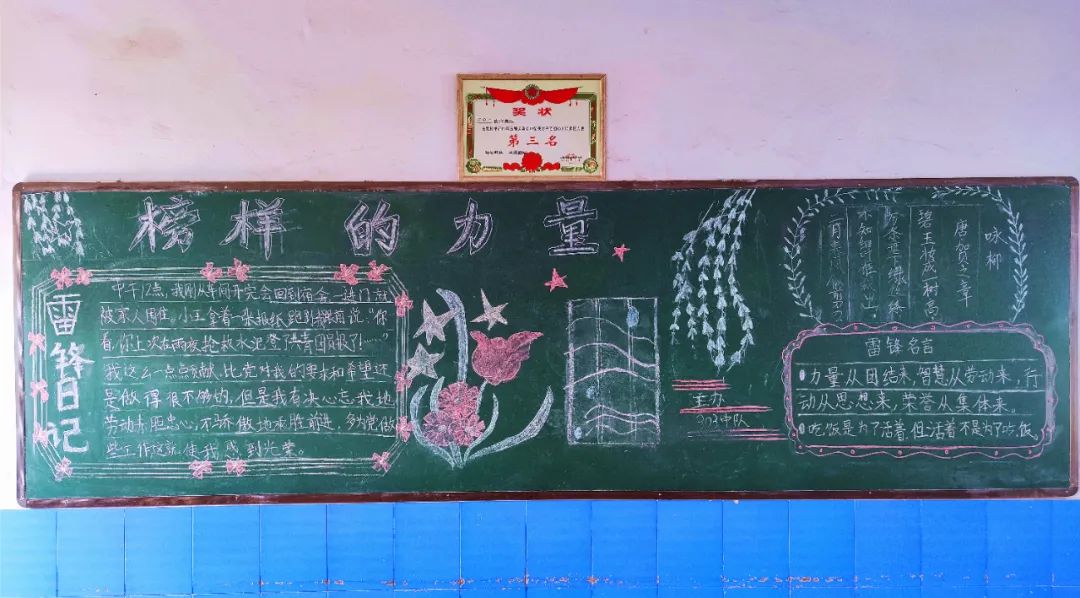 奖状
第三名
榜样的力量
雷锋日记
中午12点,我刚从车间开完会回到宿舍,一进门就
被人围住。小王拿着一张报纸跑到我跟前说:“你
看,你上次在雨夜抢救水泥登报了!……”
我这么一点点贡献,比党对我的要求和希望还
是做得很不够的,但是我有决心,我地
劳动,忠心,不骄傲地乘胜前进,多为党做
些工作,这就使我感到光荣。
主办
303中队
咏柳
唐 贺之章
碧玉妆成一树高,
万条垂下绿丝绦。
不知细叶谁裁出,
二月春风似剪刀。
雷锋名言
力量从团结来,智慧从劳动来,行
动从思想来,荣誉从集体来。
吃饭是为了活着,但活着不是为了吃饭。